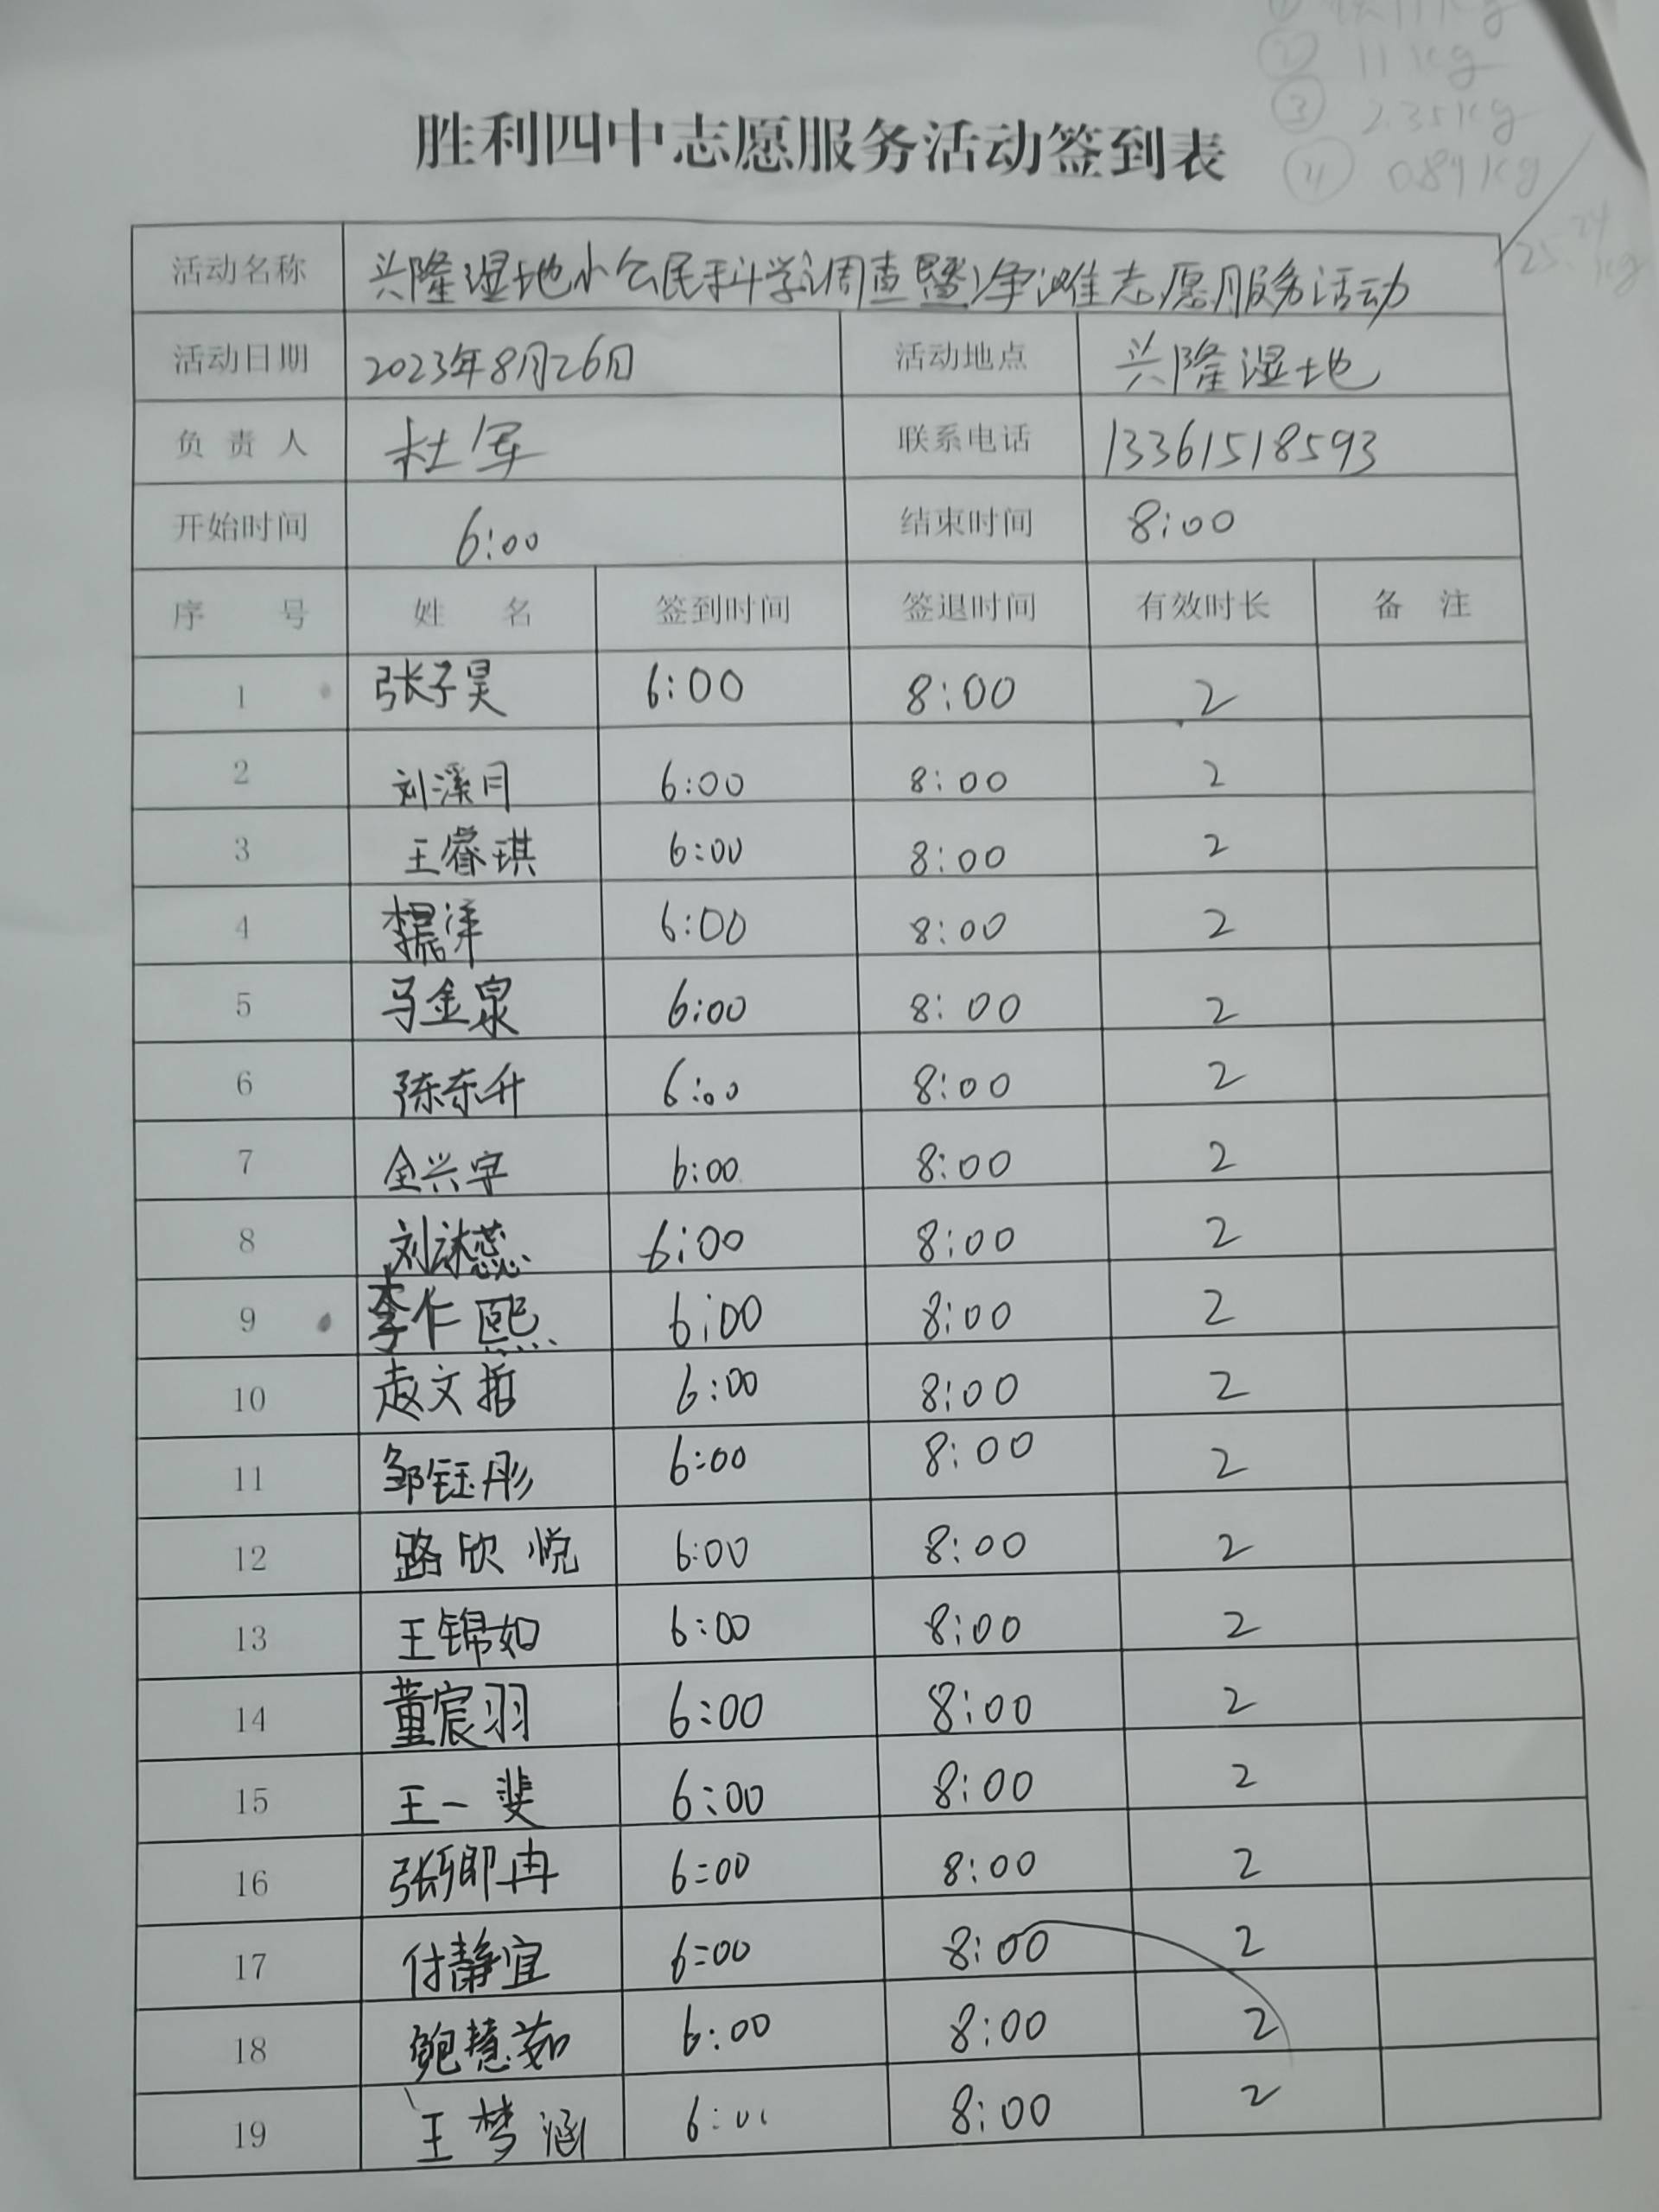 ② 11kg
③ 2.35kg
④ 0.89kg
胜利四中志愿服务活动签到表
活动名称 兴隆湿地小公民科学调查暨净滩志愿服务活动
活动日期 2023年8月26日 活动地点 兴隆湿地
负责人 杜军 联系电话 13361518593
开始时间 6:00 结束时间 8:00
序号 姓名 签到时间 签退时间 有效时长 备注
1 张子昊 6:00 8:00 2
2 刘溪月 6:00 8:00 2
3 王睿琪 6:00 8:00 2
4 6:00 8:00 2
5 马金泉 6:00 8:00 2
6 陈东升 6:00 8:00 2
7 全兴宇 6:00 8:00 2
8 刘沐蕊 6:00 8:00 2
9 李仁熙 6:00 8:00 2
10 赵文哲 6:00 8:00 2
11 邹钰彤 6:00 8:00 2
12 路欣悦 6:00 8:00 2
13 王锦如 6:00 8:00 2
14 董宸羽 6:00 8:00 2
15 王一斐 6:00 8:00 2
16 6:00 8:00 2
17 付静宜 6:00 8:00 2
18 鲍慧茹 6:00 8:00 2
19 王梦涵 6:00 8:00 2